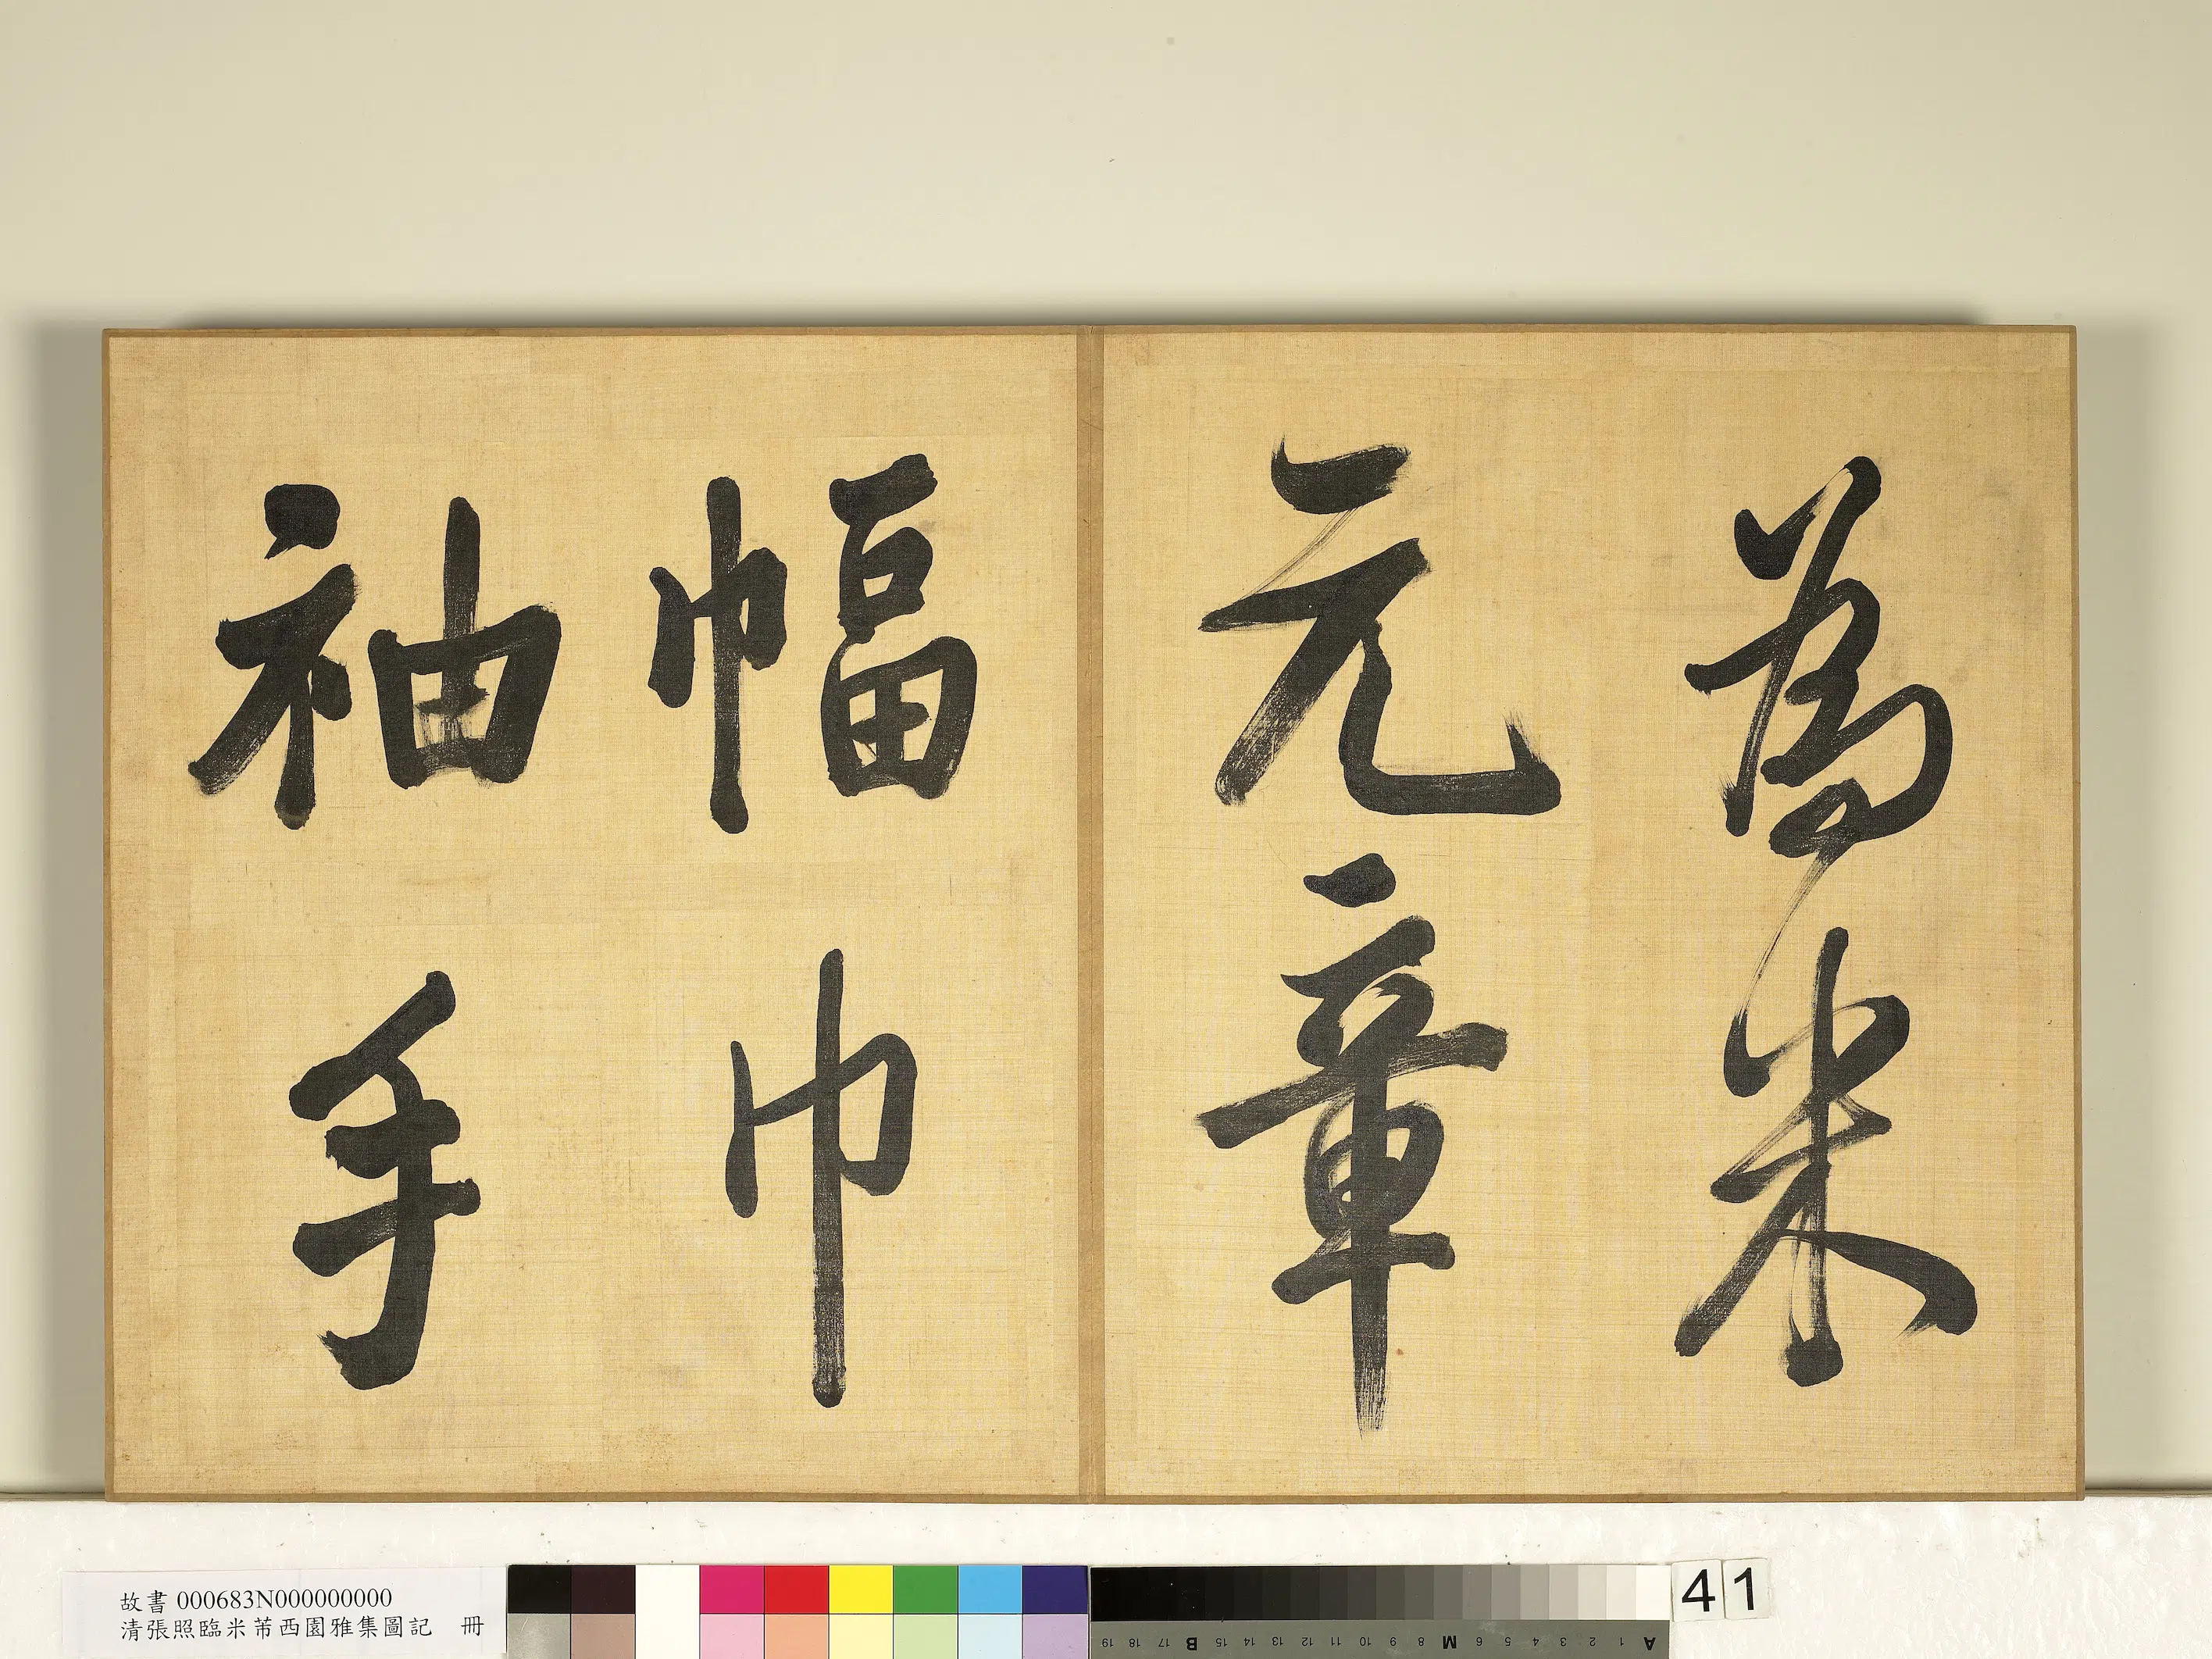 為米
元章
幅巾
袖手
故書 000683N000000000
清張照臨米芾西園雅集圖記 冊
41
19 18 17 B 15 14 13 12 11 10 9 8 M 6 5 4 3 2 1 A